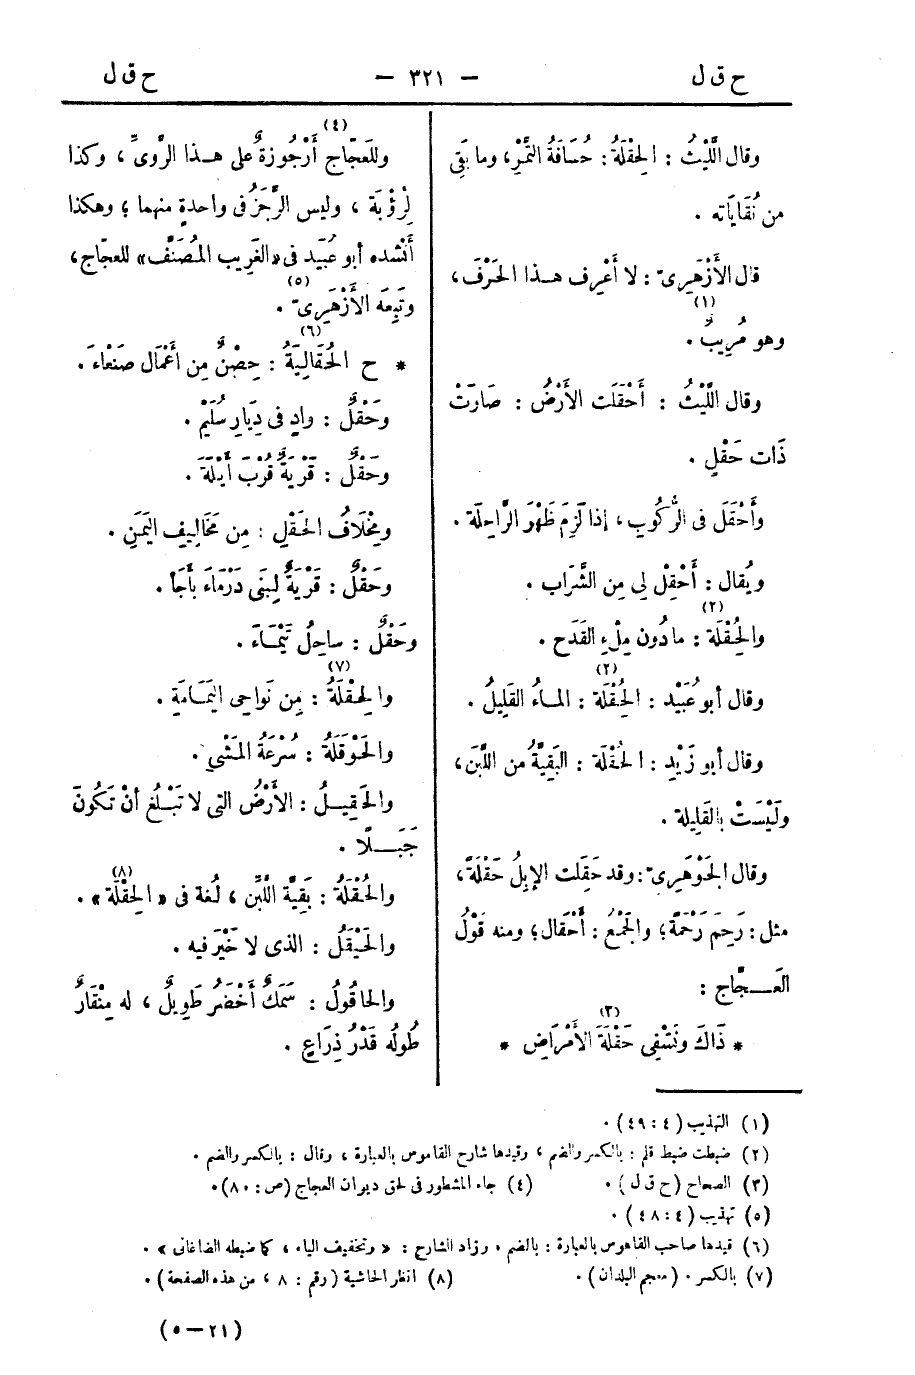 ح ق ل — ٣٢١ — ح ق ل
وقال اللَّيْثُ : الحِقْلَةُ : حُسَافَةُ التَّمْرِ، وما بَقِىَ
من نُقَايَاتِه .
قال الأَزْهَرِىّ : لا أَعْرِف هـذا الحَرْفَ،
وهو مُرِيبٌ (١) .
وقال اللَّيْثُ : أَحْقَلَت الأَرْضُ : صَارَتْ
ذَات حَقْلٍ .
وأَحْقَلَ فى الرُّكُوبِ، إذا لَزِمَ ظَهْرَ الرَّاحِلَة .
ويُقال : أَحْقِلْ لى مِن الشَّرَاب .
والحُِقْلَة (٢) : مادُون مِلْءِ القَدَح .
وقال أبو عُبَيْد : الحُِقْلَة (٢) : المـاءُ القَلِيلُ .
وقال أبو زَيْدٍ : الحُقْلَة : البَقِيَّةُ من اللَّبَن،
ولَيْسَتْ بالقَلِيلة .
وقال الجَوْهَرِىّ : وقد حَقِلَت الإبِلُ حَقْلَةً،
مثل : رَحِمَ رَحْمَةً؛ والجَمْعُ : أَحْقَال؛ ومنه قَوْلُ
العَـــجَّاج :
* ذَاكَ ونَشْفِى حَقْلَةَ (٣) الأَمْرَاضِ *
وللعَجّاج أُرْجُوزةٌ (٤) على هـذا الرَّوِىِّ، وكذا
لِرُؤْبَة ، وليس الرَّجَزُ فى واحدةٍ منهما ؛ وهكذا
أَنْشده أبو عُبَيد فى «الغَرِيب المُصَنَّف» للعجّاج،
وتَبِعَه الأَزْهَرِىّ (٥) .
* ح الحُقَالِيَةُ (٦) : حِصْنٌ مِن أَعْمَال صَنْعَاءَ .
وحَقْلٌ : وادٍ فى دِيَارِ سُلَيْم .
وحَقْلٌ : قَرْيَةٌ قُرْبَ أَيْلَةَ .
ومِخْلَافُ الحَقْلِ : مِن مَخَالِيف اليَمَنِ .
وحَقْلٌ : قَرْيَةٌ لِبَنِى دَرْمَاءَ بأَجَأ .
وحَقْلٌ : ساحِلُ تَيْمَـاءَ .
والحِقْلَةُ (٧) : مِن نَواحِى اليَمَـامَةِ .
والحَوْقَلَةُ : سُرْعَةُ المَشْىِ .
والحَقِيـلُ : الأَرْضُ التى لا تَبْلُغ أنْ تَكُونَ
جَبَـــلًا .
والحُقْلَةُ : بَقِيَّة اللَّبَن ، لُغة فى « الحِقْلَة (٨) » .
والحَيْقَلُ : الذى لا خَيْرَ فيه .
والحاقُولُ : سَمَكٌ أَخْضَرُ طَوِيلٌ ، له مِنْقَارٌ
طُولُه قَدْرُ ذِرَاعٍ .
(١) التهذيب (٤ : ٤٩) .
(٢) ضبطت ضبط قلم : بالكسر والضم ، وقيدها شارح القاموس بالعبارة ، وقال : بالكسر والضم .
(٣) الصحاح (ح ق ل) . (٤) جاء المشطور فى لحق ديوان العجاج (ص : ٨٠) .
(٥) تهذيب (٤ : ٤٨) .
(٦) قيدها صاحب القاموس بالعبارة : بالضم . وزاد الشارح : « وتخفيف الياء ، كما ضبطه الصاغانى » .
(٧) بالكسر . (معجم البلدان) . (٨) انظر الحاشية (رقم : ٨ ، من هذه الصفحة) .
(٢١ — ٥)